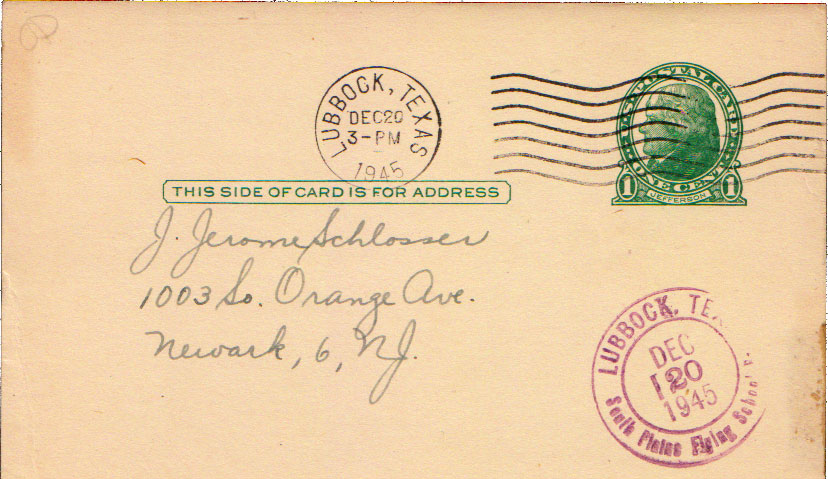 LUBBOCK, TEXAS
DEC 20
3-PM
1945
U.S. POSTAL CARD
ONE CENT
1 1
JEFFERSON
THIS SIDE OF CARD IS FOR ADDRESS
J. Jerome Schlosser
1003 So. Orange Ave.
Newark, 6, N.J.
LUBBOCK, TE
DEC
20
1945
South Plains Flying School